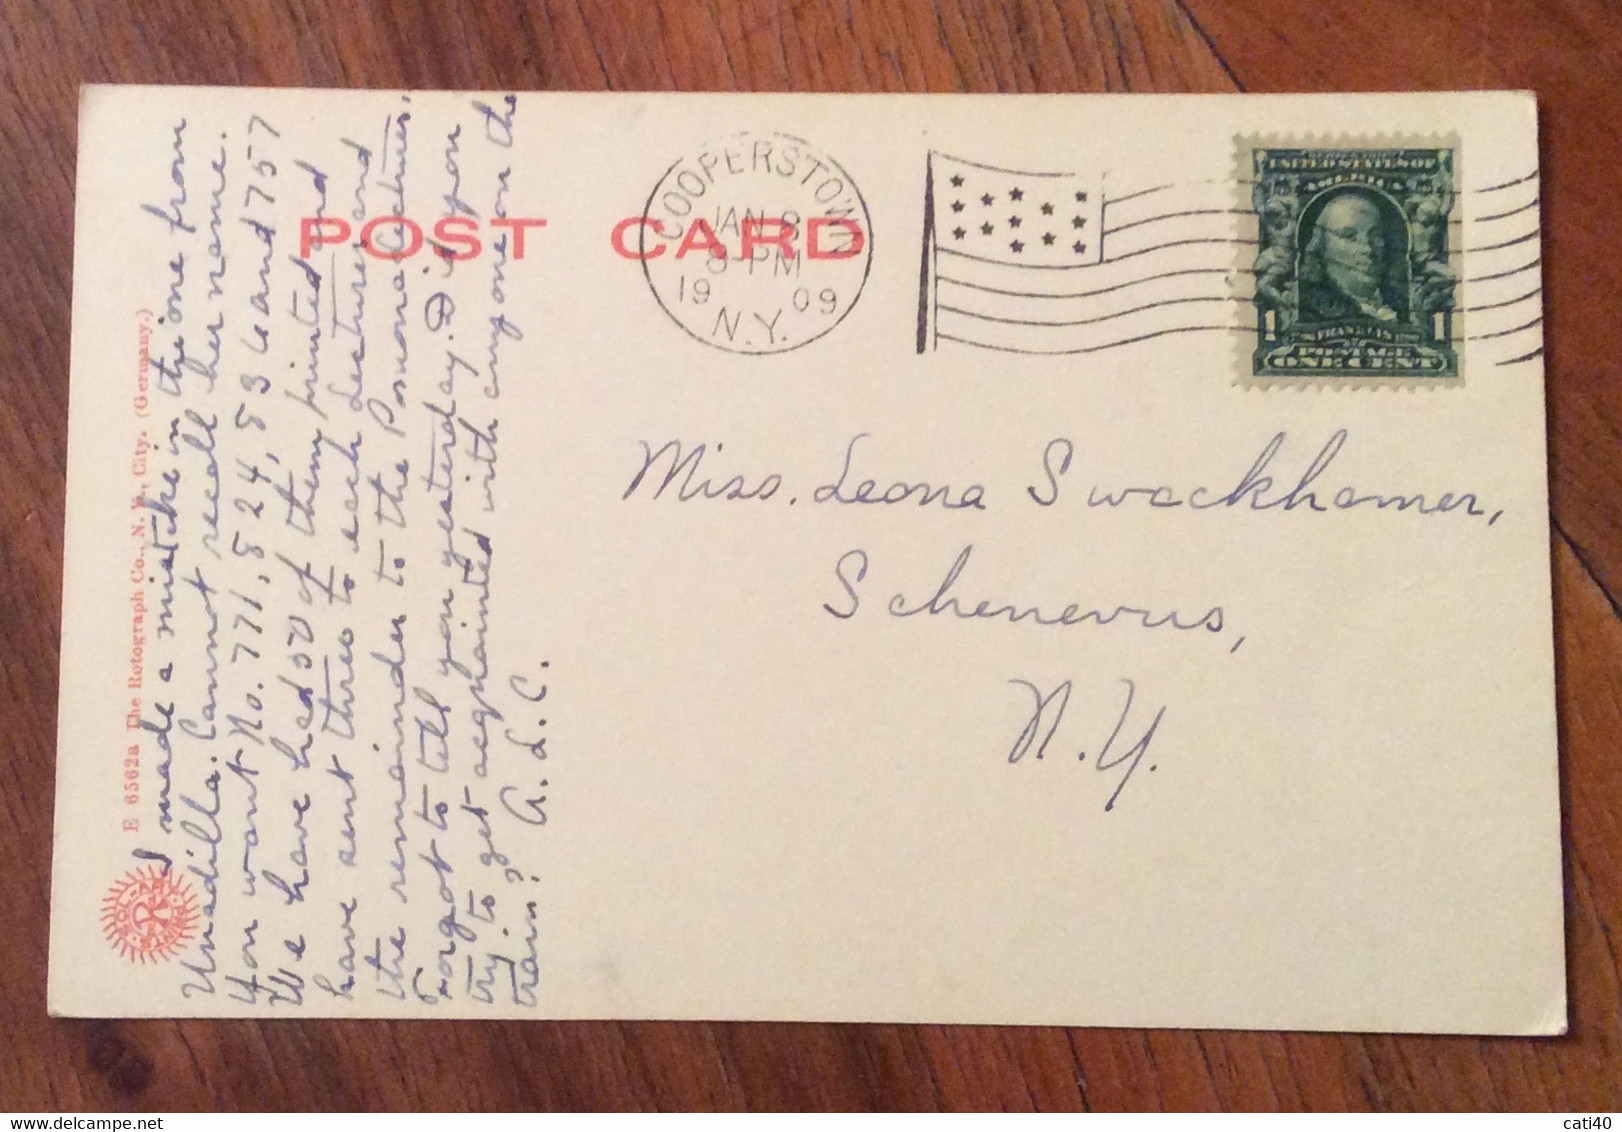 POST CARD
COOPERSTOWN
JAN 8
8-PM
19 09
N.Y.
UNITED STATES OF
AMERICA
1 FRANKLIN 1
POSTAGE
ONE CENT
Miss. Leona Swackhamer,
Schenevus,
N.Y.
E 6562a The Rotograph Co., N. Y., City. (Germany.)
I made a mistake in the one from
Unadilla. Cannot recall her name.
You want No. 771, 824, 836 and 757
We have had 50 of them printed and
have sent three to each lecturer and
the remainder to the Pomona lecturer.
Forgot to tell you yesterday. Did you
try to get acqhainted with any one on the
train? A. L. C.
cati40